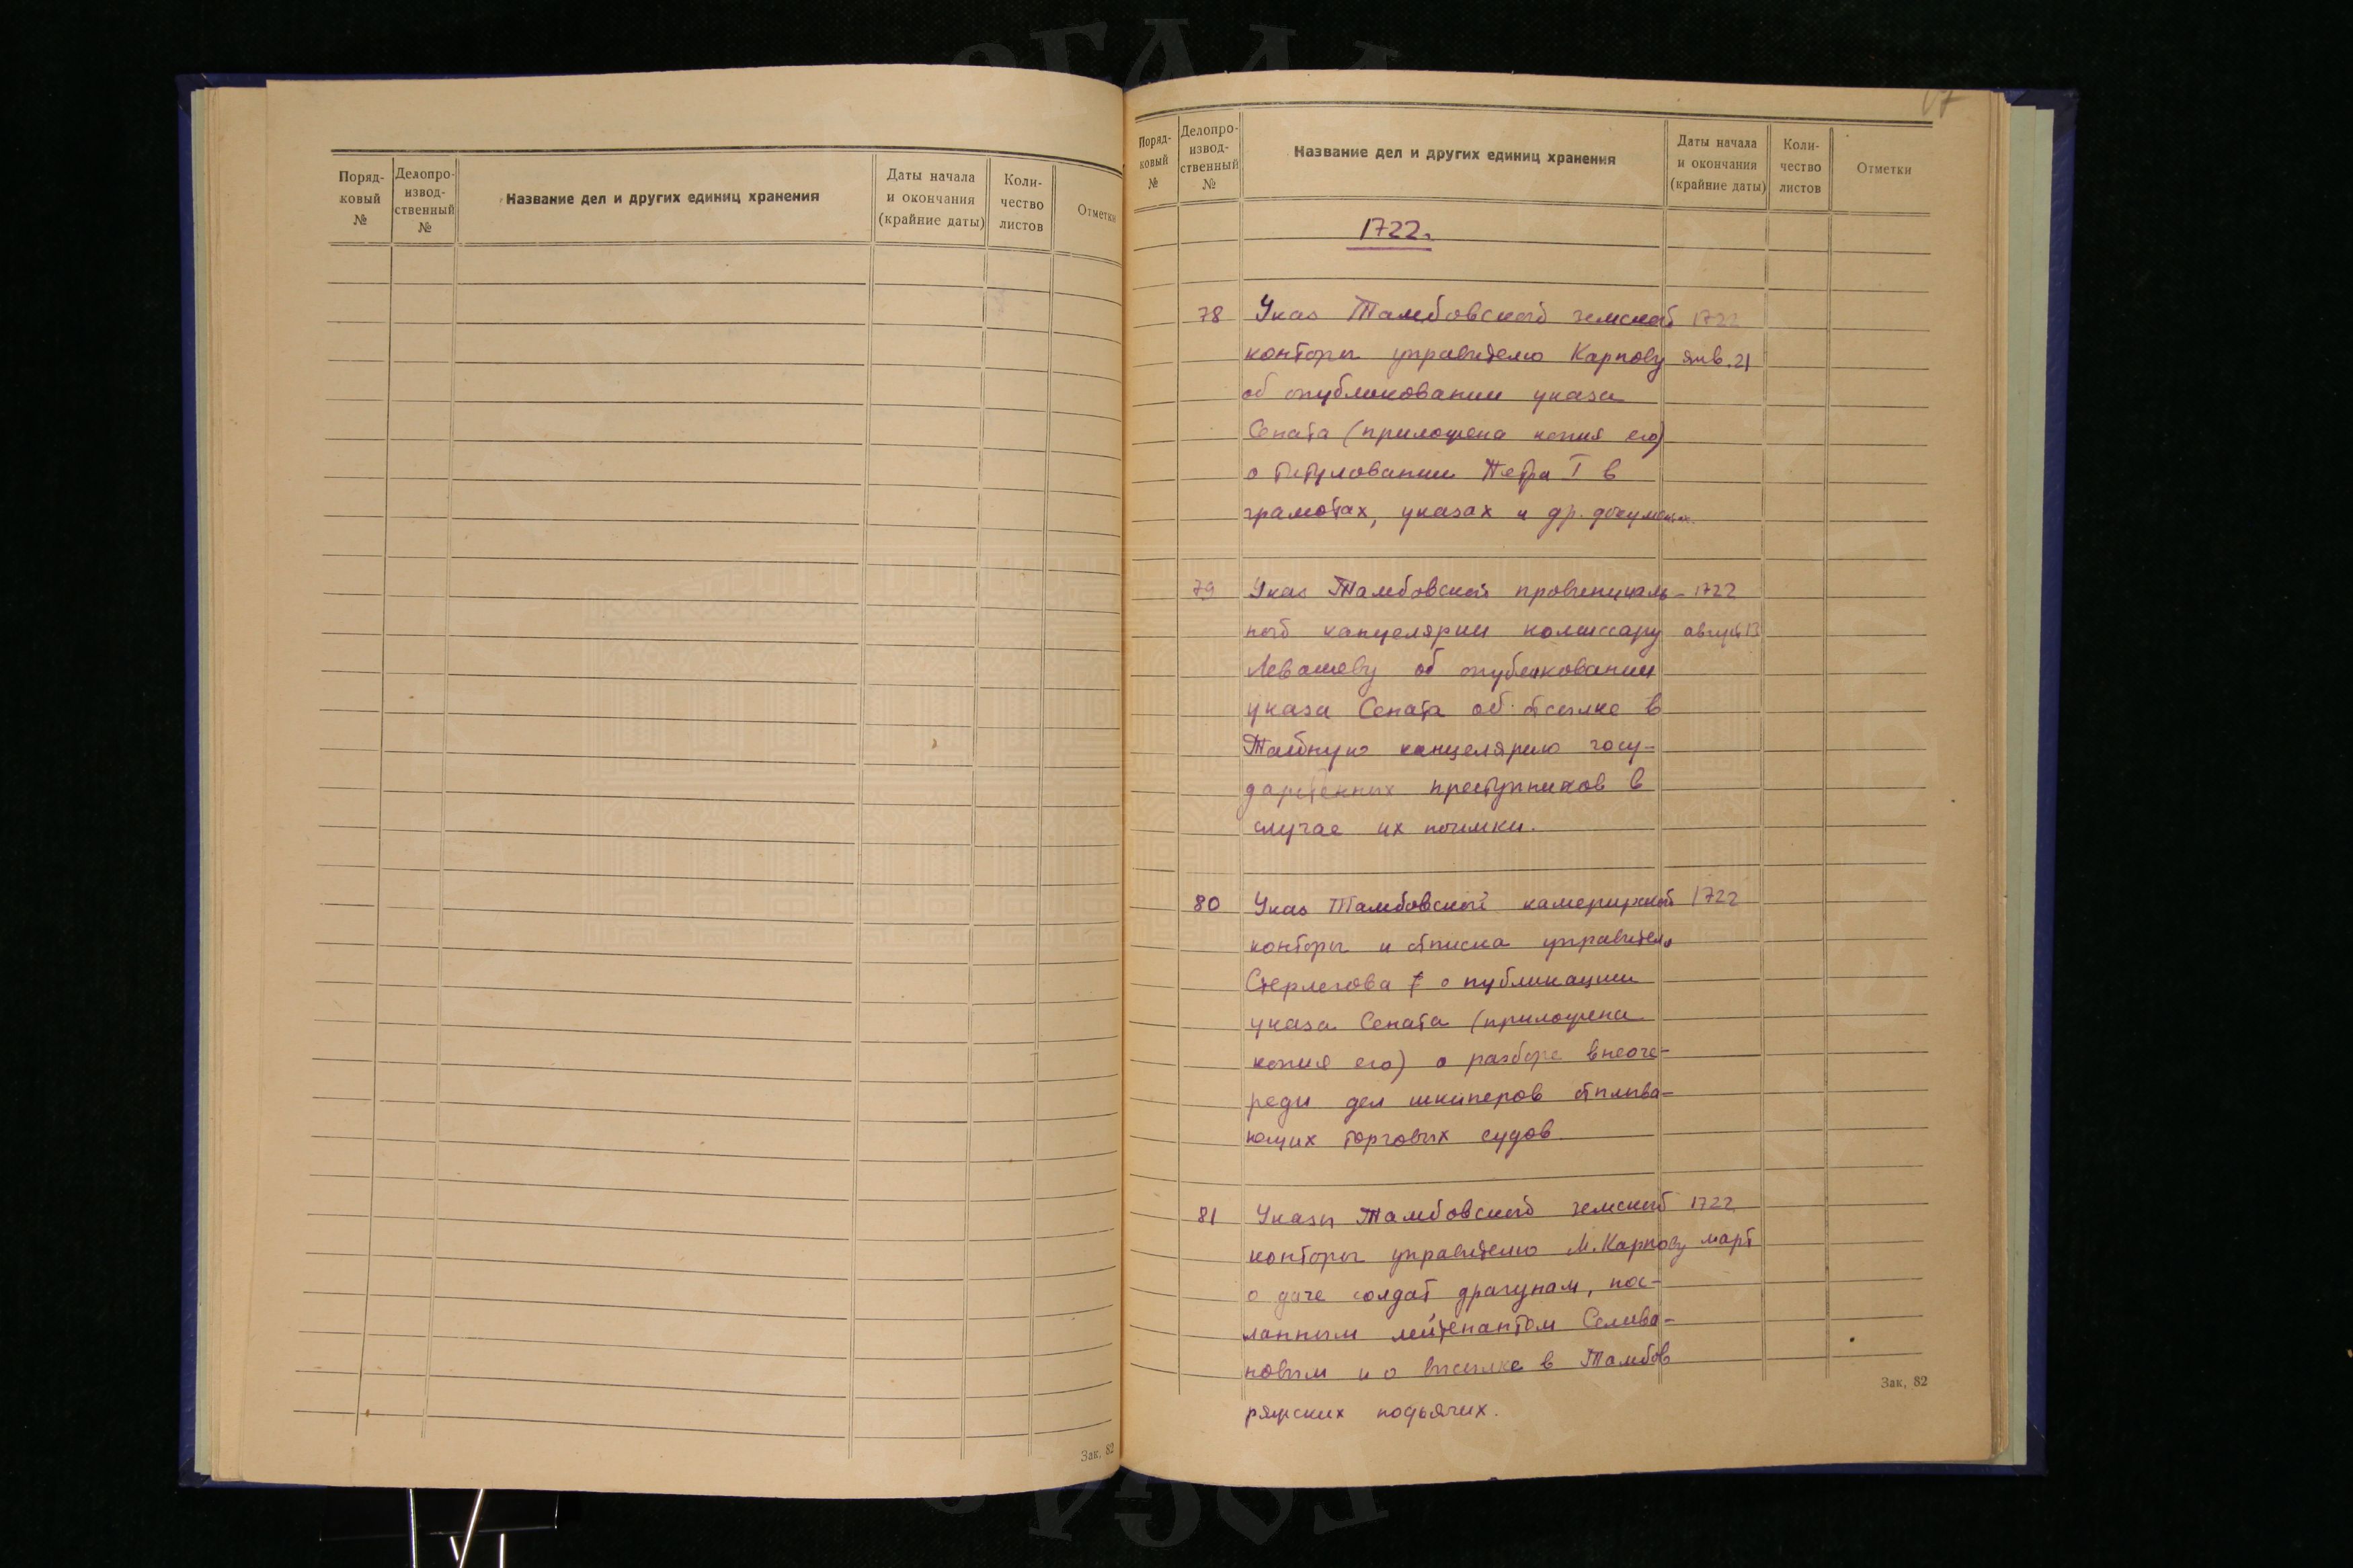 Поряд-
ковый
№
Делопро-
извод-
ственный
№
Название дел и других единиц хранения
Даты начала
и окончания
(крайние даты)
Коли-
чество
листов
Отметки
Зак. 82
Поряд-
ковый
№
Делопро-
извод-
ственный
№
Название дел и других единиц хранения
Даты начала
и окончания
(крайние даты)
Коли-
чество
листов
Отметки
1722.
78 Указ Тамбовской земской 1722
конторы управителю Карпову янв. 21
об опубликовании указа
Сената (приложена копия его)
о титуловании Петра I в
грамотах, указах и др. документах.
79 Указ Тамбовской провинциаль- 1722
ной канцелярии комиссару август 13
Левашеву об опубликовании
указа Сената об отсылке в
Тайную канцелярию госу-
дарственных преступников в
случае их поимки.
80 Указ Тамбовской камерирской 1722
конторы и отписка управителя
Стерлегова о публикации
указа Сената (приложена
копия его) о разборе внеоче-
реди дел шкиперов отплыва-
ющих торговых судов
81 Указы Тамбовской земской 1722
конторы управителю М. Карпову март
о даче солдат драгунам, пос-
ланным лейтенантом Селива-
новым и о высылке в Тамбов
ряжских подьячих.
Зак. 82